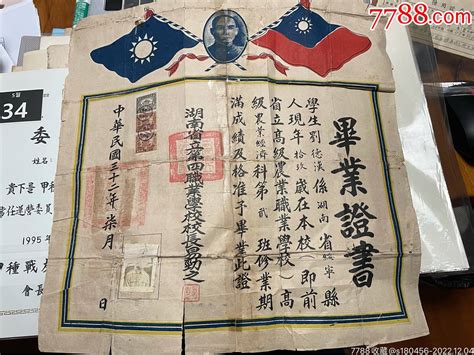 7788.com
畢業證書
學生劉德漢係湖南省 縣
人現年拾玖歲在本校(即前
省立高級農業職業學校)高
級農業經濟科第貳班修業期
滿成績及格准予畢業此證
湖南省立第四職業學校校長
中華民國三十二年柒月 日
5월
34
委
姓名
貴下
甲種
常任運營委員
1995
甲種戰
會長
7788收藏@s180456-2022.12.04